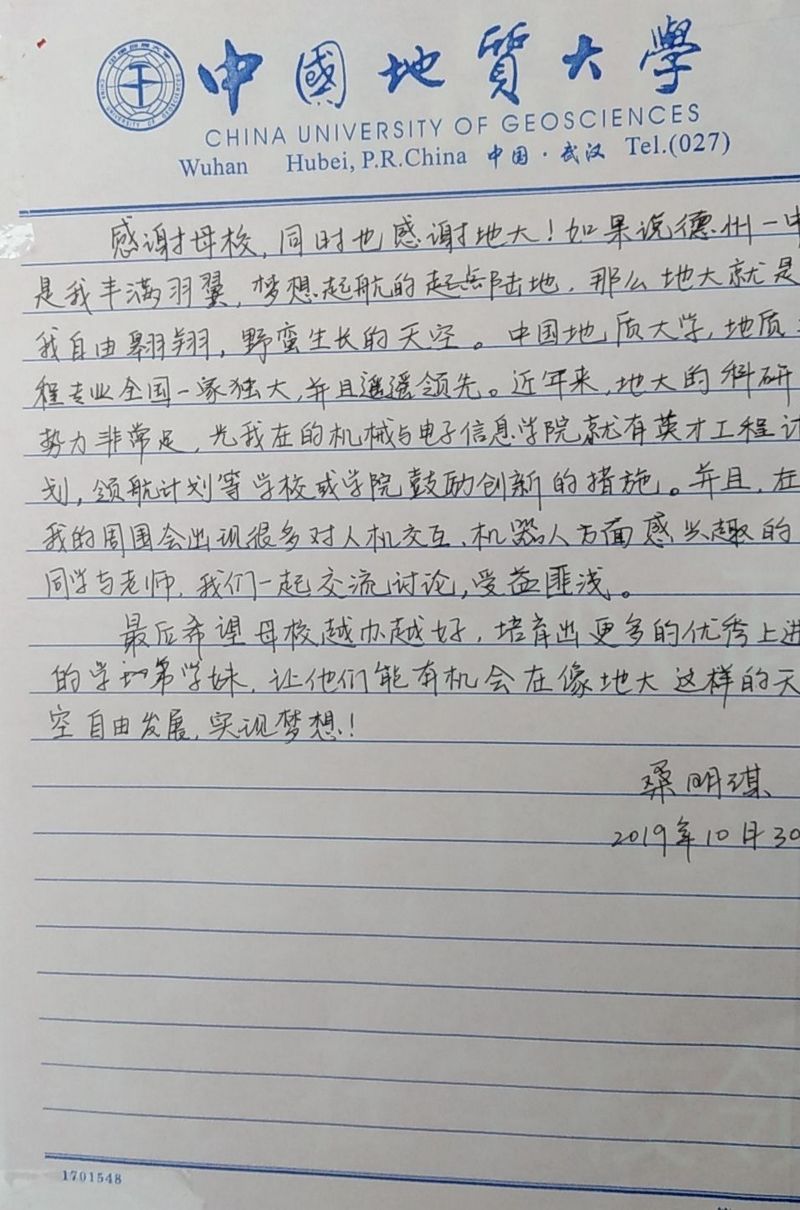 中國地質大學
CHINA UNIVERSITY OF GEOSCIENCES
Wuhan Hubei, P.R.China 中国·武汉 Tel.(027)
感谢母校，同时也感谢地大！如果说德州一中
是我丰满羽翼，梦想起航的起陆地，那么地大就是
我自由翱翔，野蛮生长的天空。中国地质大学，地质
程专业全国一家独大，并且遥遥领先。近年来，地大的科研
势力非常足，光我在的机械与电子信息学院就有英才工程计
划，领航计划等学校或学院鼓励创新的措施。并且，在
我的周围会出现很多对人机交互、机器人方面感兴趣的
同学与老师，我们一起交流讨论，受益匪浅。
最后希望母校越办越好，培育出更多的优秀上进
的学弟学妹，让他们能有机会在像地大这样的天
空自由发展，实现梦想！
桑明琪
2019年10月30
1701548